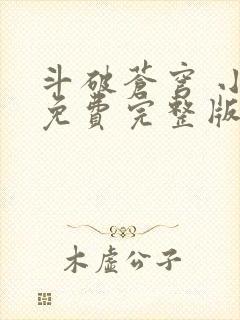 斗破苍穹小
免费完整版
木虚公子